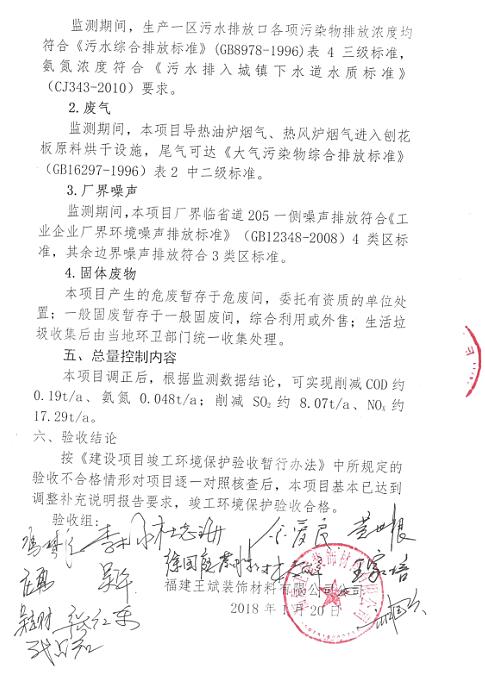 监测期间，生产一区污水排放口各项污染物排放浓度均
符合《污水综合排放标准》(GB8978-1996)表 4 三级标准，
氨氮浓度符合《污水排入城镇下水道水质标准》
（CJ343-2010）要求。
2.废气
监测期间，本项目导热油炉烟气、热风炉烟气进入刨花
板原料烘干设施，尾气可达《大气污染物综合排放标准》
（GB16297-1996）表2 中二级标准。
3.厂界噪声
监测期间，本项目厂界临省道 205 一侧噪声排放符合《工
业企业厂界环境噪声排放标准》（GB12348-2008）4 类区标
准，其余边界噪声排放符合 3 类区标准。
4.固体废物
本项目产生的危废暂存于危废间，委托有资质的单位处
置；一般固废暂存于一般固废间，综合利用或外售；生活垃
圾收集后由当地环卫部门统一收集处理。
五、总量控制内容
本项目调正后，根据监测数据结论，可实现削减 COD 约
0.19t/a、氨氮 0.048t/a；削减 SO₂ 约 8.07t/a、NOₓ 约
17.29t/a。
六、验收结论
按《建设项目竣工环境保护验收暂行办法》中所规定的
验收不合格情形对项目逐一对照核查后，本项目基本已达到
调整补充说明报告要求，竣工环境保护验收合格。
验收组：
福建王斌装饰材料有限公司公司
2018 年 1 月 20 日